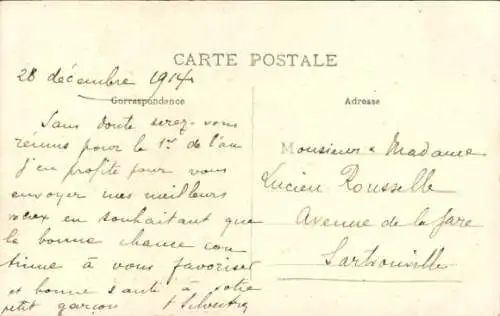 CARTE POSTALE
28 décembre 1914
Correspondance
Adresse
Sans doute serez-vous
réunis pour le 1er de l'an
j'en profite pour vous
envoyer mes meilleurs
vœux en souhaitant que
la bonne chance con
tinue à vous favoriser
et bonne santé à votre
petit garçon
Monsieur & Madame
Lucien Rousselle
Avenue de la Gare
Sartrouville